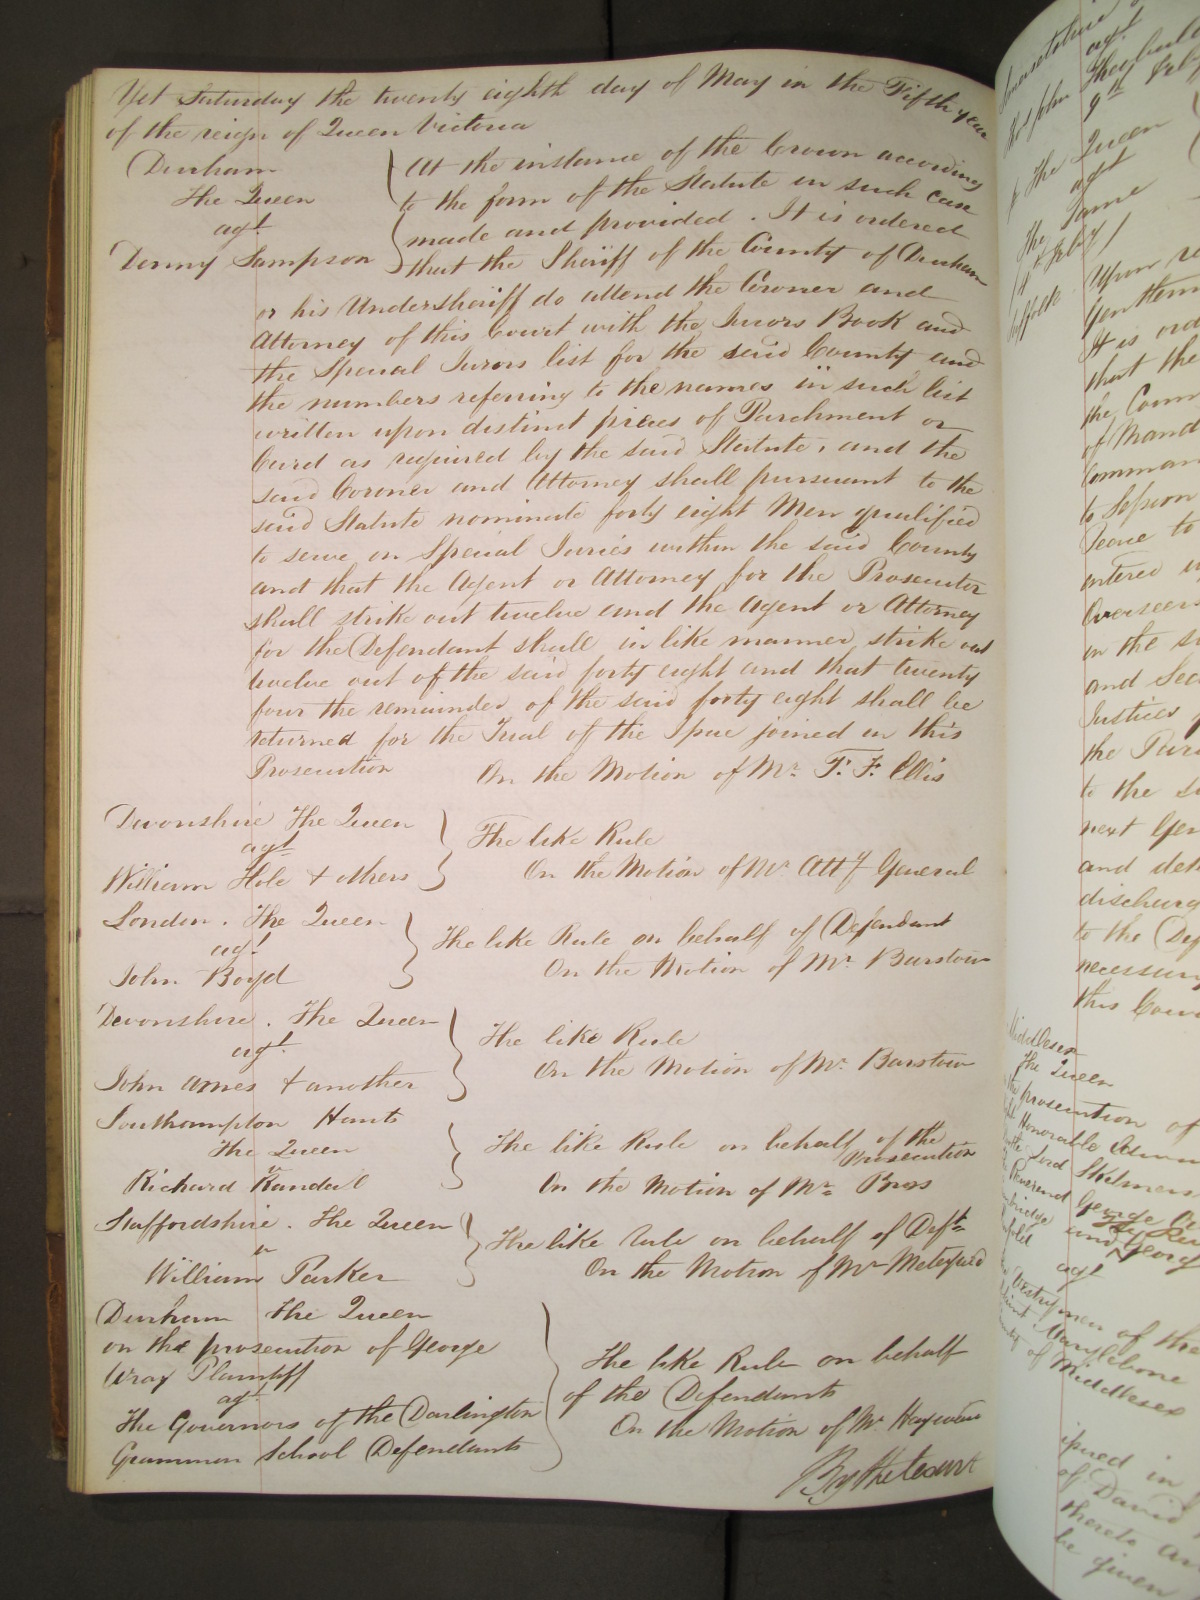 Yet Saturday the twenty eighth day of May in the Fifth year
of the reign of Queen Victoria
Durham
The Queen
agt
Denny Sampson
At the instance of the Crown according
to the form of the Statute in such case
made and provided. It is ordered
that the Sheriff of the County of Durham
or his Undersheriff do attend the Coroner and
Attorney of this Court with the Jurors Book and
the Special Jurors list for the said County and
the numbers referring to the names in such list
written upon distinct pieces of Parchment or
Card as required by the said Statute, and the
said Coroner and Attorney shall pursuant to the
said Statute nominate forty eight Men qualified
to serve on Special Juries within the said County
and that the Agent or Attorney for the Prosecutor
shall strike out twelve and the Agent or Attorney
for the Defendant shall in like manner strike out
twelve out of the said forty eight and that twenty
four the remainder of the said forty eight shall be
returned for the Trial of the Issue joined in this
Prosecution
On the Motion of Mr. T. F. Ellis
Devonshire The Queen
agt
William Hole & others
The like Rule
On the Motion of Mr Atty General
London. The Queen
agt
John Boyd
The like Rule on behalf of Defendant
On the Motion of Mr. Barstow
Devonshire. The Queen
agt
John Ames & another
The like Rule
On the Motion of Mr. Barstow
Southampton Hants
The Queen
v
Richard Randall
The like Rule on behalf of the
Prosecution
On the Motion of Mr.
Staffordshire. The Queen
v
William Parker
The like Rule on behalf of Deft
On the Motion of Mr
Durham The Queen
on the prosecution of George
Wray Plaintiff
agt
The Governors of the Darlington
Grammar School Defendants
The like Rule on behalf
of the Defendants
On the Motion of Mr.
By the Court
agt
9th
The Queen
agt
The Same
Upon
Gentlem
It is ord
that the
the Comm
of Mand
Comman
to Session
Peace to
entered
Overseers
in the
and Sec
Justices
the Pari
to the
next Gen
and det
discharg
to the Def
necessary
this Cour
Middlesex
The Queen
prosecution of
Honorable
Lord Skelmers
Reverend George
and Georg
agt
Vestrymen of the
Marylebone
of Middlesex
in
of David
thereto an
be given